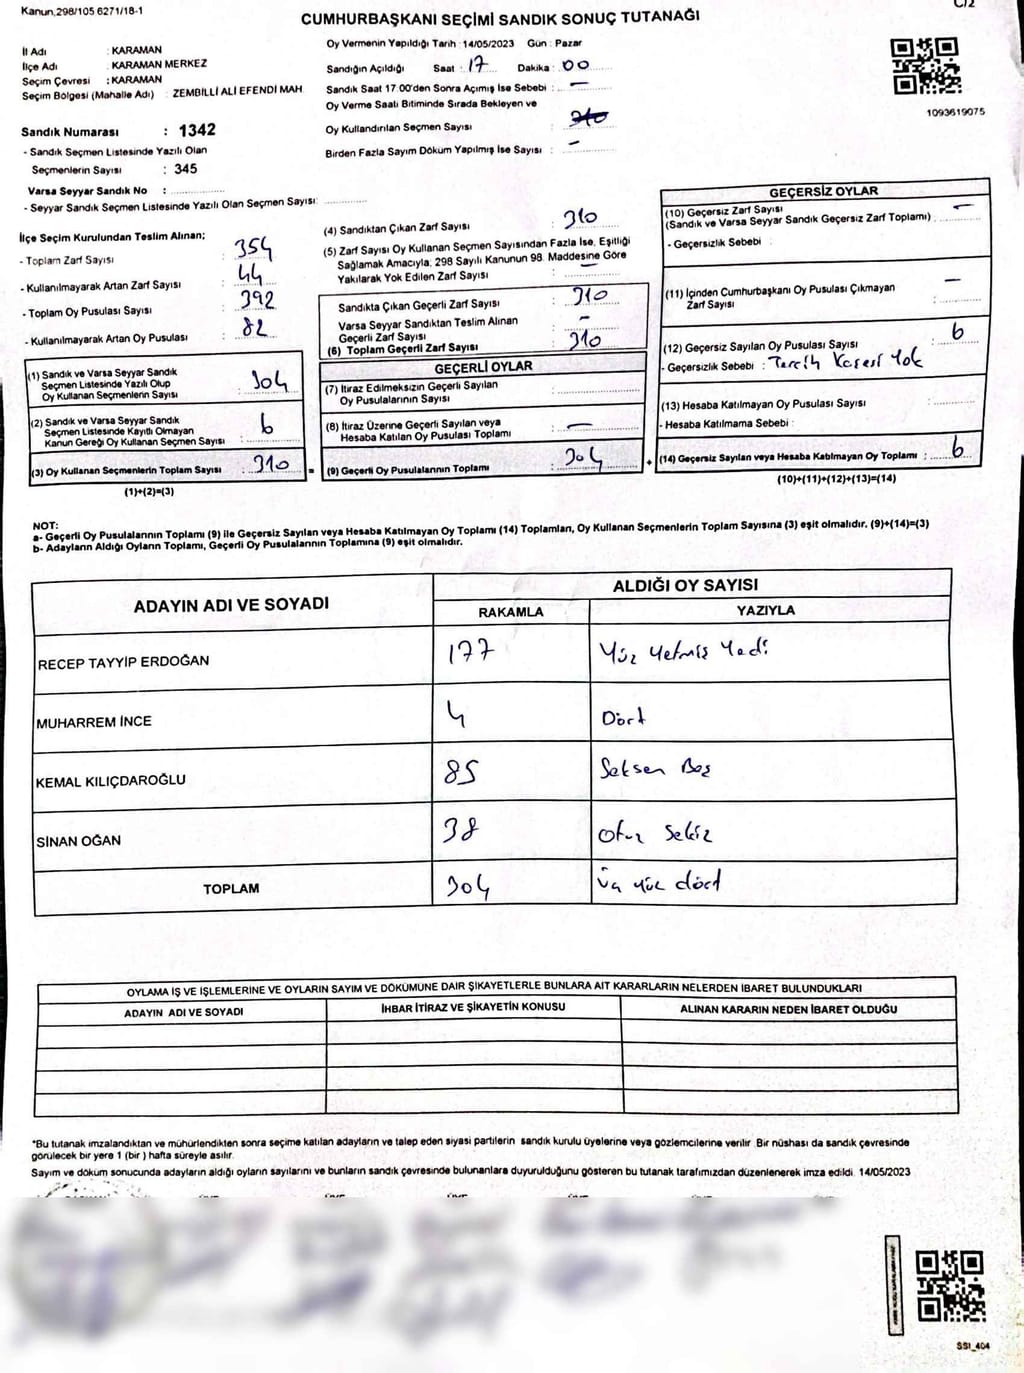 Kanun,298/105 6271/18-1
C/2
CUMHURBAŞKANI SEÇİMİ SANDIK SONUÇ TUTANAĞI
İl Adı : KARAMAN
İlçe Adı : KARAMAN MERKEZ
Seçim Çevresi : KARAMAN
Seçim Bölgesi (Mahalle Adı) : ZEMBİLLİ ALİ EFENDİ MAH.
Sandık Numarası : 1342
- Sandık Seçmen Listesinde Yazılı Olan
Seçmenlerin Sayısı : 345
Varsa Seyyar Sandık No :
- Seyyar Sandık Seçmen Listesinde Yazılı Olan Seçmen Sayısı:
Oy Vermenin Yapıldığı Tarih : 14/05/2023 Gün : Pazar
Sandığın Açıldığı Saat : 17 Dakika : 00
Sandık Saat 17.00'den Sonra Açımış İse Sebebi : —
Oy Verme Saati Bitiminde Sırada Bekleyen ve
Oy Kullandırılan Seçmen Sayısı : 310
Birden Fazla Sayım Döküm Yapılmış İse Sayısı : —
1093619075
İlçe Seçim Kurulundan Teslim Alınan;
- Toplam Zarf Sayısı : 354
- Kullanılmayarak Artan Zarf Sayısı : 44
- Toplam Oy Pusulası Sayısı : 392
- Kullanılmayarak Artan Oy Pusulası : 82
(1) Sandık ve Varsa Seyyar Sandık
Seçmen Listesinde Yazılı Olup
Oy Kullanan Seçmenlerin Sayısı : 304
(2) Sandık ve Varsa Seyyar Sandık
Seçmen Listesinde Kayıtlı Olmayan
Kanun Gereği Oy Kullanan Seçmen Sayısı : 6
(3) Oy Kullanan Seçmenlerin Toplam Sayısı : 310
(1)+(2)=(3)
(4) Sandıktan Çıkan Zarf Sayısı : 310
(5) Zarf Sayısı Oy Kullanan Seçmen Sayısından Fazla İse, Eşitliği
Sağlamak Amacıyla; 298 Sayılı Kanunun 98. Maddesine Göre
Yakılarak Yok Edilen Zarf Sayısı : —
Sandıkta Çıkan Geçerli Zarf Sayısı : 310
Varsa Seyyar Sandıktan Teslim Alınan
Geçerli Zarf Sayısı : —
(6) Toplam Geçerli Zarf Sayısı : 310
GEÇERLİ OYLAR
(7) İtiraz Edilmeksizin Geçerli Sayılan
Oy Pusulalarının Sayısı :
(8) İtiraz Üzerine Geçerli Sayılan veya
Hesaba Katılan Oy Pusulası Toplamı : —
(9) Geçerli Oy Pusulalarının Toplamı : 304
GEÇERSİZ OYLAR
(10) Geçersiz Zarf Sayısı
(Sandık ve Varsa Seyyar Sandık Geçersiz Zarf Toplamı) : —
- Geçersizlik Sebebi :
(11) İçinden Cumhurbaşkanı Oy Pusulası Çıkmayan
Zarf Sayısı : —
(12) Geçersiz Sayılan Oy Pusulası Sayısı : 6
- Geçersizlik Sebebi : Tercih Kaşesi Yok
(13) Hesaba Katılmayan Oy Pusulası Sayısı :
- Hesaba Katılmama Sebebi :
(14) Geçersiz Sayılan veya Hesaba Katılmayan Oy Toplamı : 6
(10)+(11)+(12)+(13)=(14)
NOT:
a- Geçerli Oy Pusulalarının Toplamı (9) ile Geçersiz Sayılan veya Hesaba Katılmayan Oy Toplamı (14) Toplamları, Oy Kullanan Seçmenlerin Toplam Sayısına (3) eşit olmalıdır. (9)+(14)=(3)
b- Adayların Aldığı Oyların Toplamı, Geçerli Oy Pusulalarının Toplamına (9) eşit olmalıdır.
ADAYIN ADI VE SOYADI ALDIĞI OY SAYISI
RAKAMLA YAZIYLA
RECEP TAYYİP ERDOĞAN 177 Yüz Yetmiş Yedi
MUHARREM İNCE 4 Dört
KEMAL KILIÇDAROĞLU 85 Seksen Beş
SİNAN OĞAN 38 Otuz Sekiz
TOPLAM 304 Üç Yüz dört
OYLAMA İŞ VE İŞLEMLERİNE VE OYLARIN SAYIM VE DÖKÜMÜNE DAİR ŞİKAYETLERLE BUNLARA AİT KARARLARIN NELERDEN İBARET BULUNDUKLARI
ADAYIN ADI VE SOYADI İHBAR İTİRAZ VE ŞİKAYETİN KONUSU ALINAN KARARIN NEDEN İBARET OLDUĞU
*Bu tutanak imzalandıktan ve mühürlendikten sonra seçime katılan adayların ve talep eden siyasi partilerin sandık kurulu üyelerine veya gözlemcilerine verilir. Bir nüshası da sandık çevresinde
görülecek bir yere 1 (bir) hafta süreyle asılır.
Sayım ve döküm sonucunda adayların aldığı oyların sayılarını ve bunların sandık çevresinde bulunanlara duyurulduğunu gösteren bu tutanak tarafımızdan düzenlenerek imza edildi. 14/05/2023
SSI_404